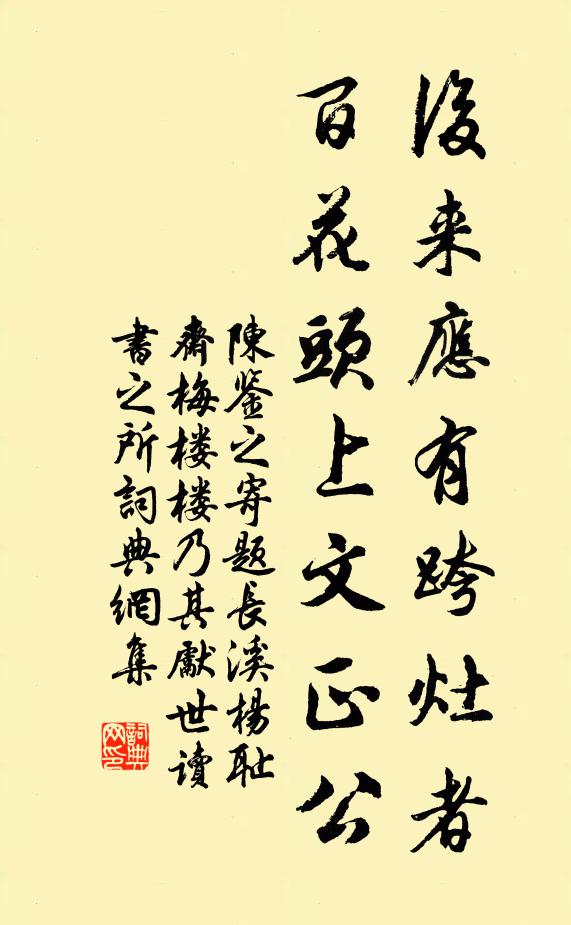 後来應有跨灶者
百花頭上文正公
陳鉴之寄題長溪楊耻
齋梅楼楼乃其獻世讀
書之所詞典網集
詞典网印